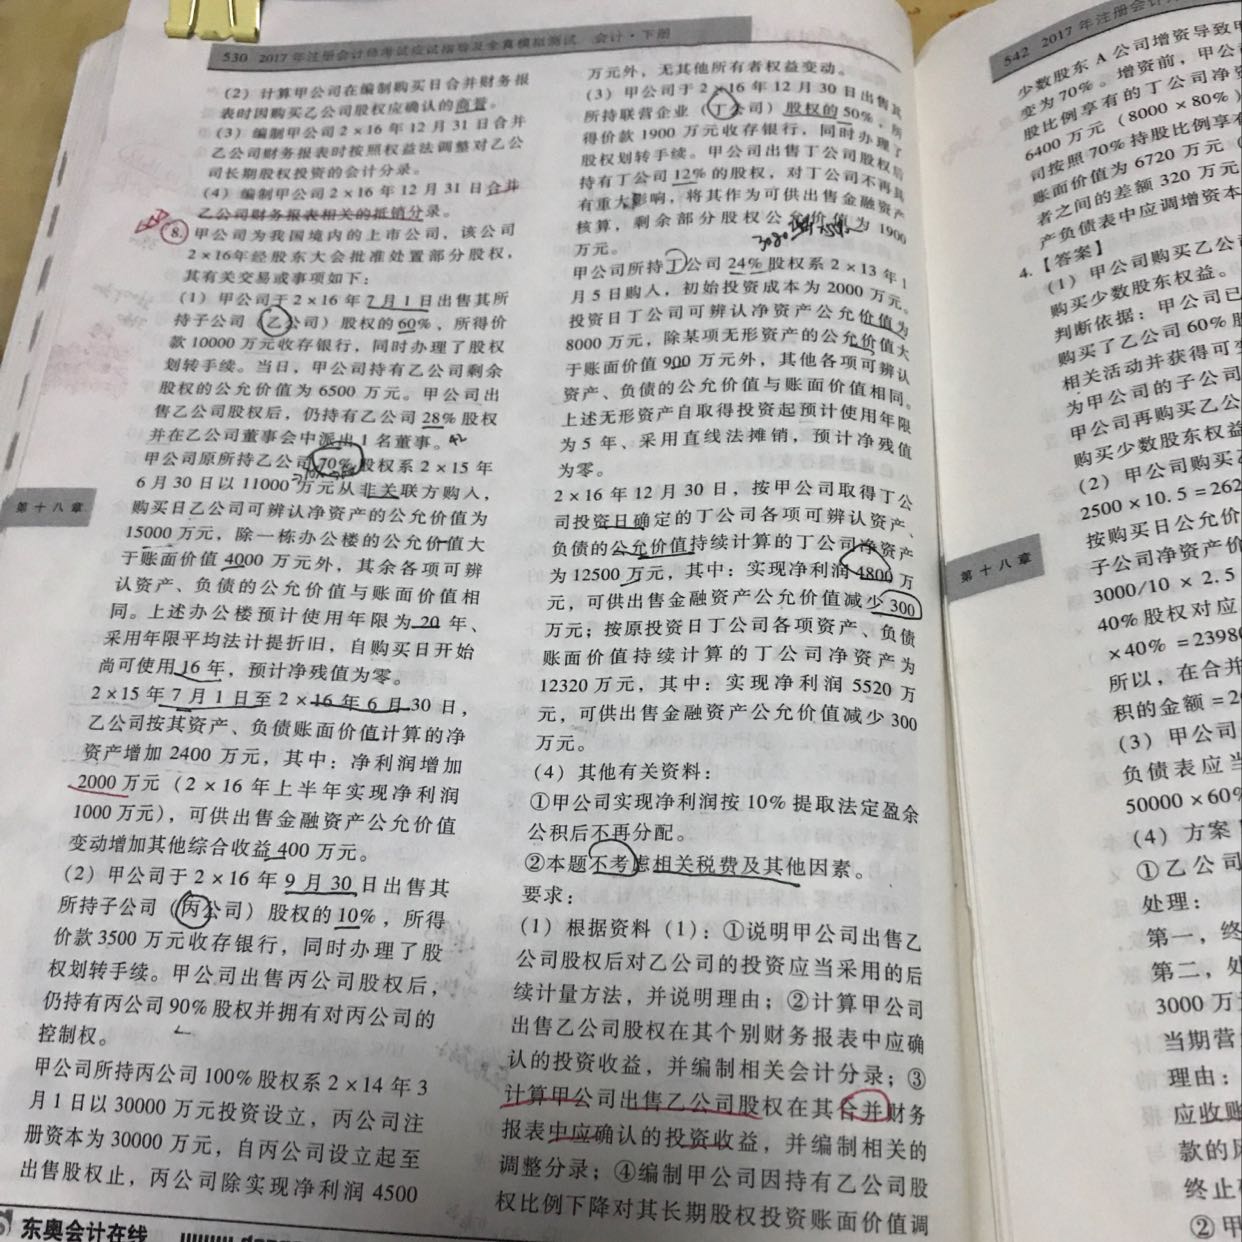 530 2017年注册会计师考试应试指导及全真模拟测试 会计·下册
(2) 计算甲公司在编制购买日合并财务报
表时因购买乙公司股权应确认的商誉。
(3) 编制甲公司2×16年12月31日合并
乙公司财务报表时按照权益法调整对乙公
司长期股权投资的会计分录。
(4) 编制甲公司2×16年12月31日合并
乙公司财务报表相关的抵销分录。
8. 甲公司为我国境内的上市公司,该公司
2×16年经股东大会批准处置部分股权,
其有关交易或事项如下:
(1) 甲公司于2×16年7月1日出售其所
持子公司(乙公司)股权的60%,所得价
款10000万元收存银行,同时办理了股权
划转手续。当日,甲公司持有乙公司剩余
股权的公允价值为6500万元。甲公司出
售乙公司股权后,仍持有乙公司28%股权
并在乙公司董事会中派出1名董事。
甲公司原所持乙公司70%股权系2×15年
6月30日以11000万元从非关联方购入,
购买日乙公司可辨认净资产的公允价值为
15000万元,除一栋办公楼的公允价值大
于账面价值4000万元外,其余各项可辨
认资产、负债的公允价值与账面价值相
同。上述办公楼预计使用年限为20年、
采用年限平均法计提折旧,自购买日开始
尚可使用16年,预计净残值为零。
2×15年7月1日至2×16年6月30日,
乙公司按其资产、负债账面价值计算的净
资产增加2400万元,其中:净利润增加
2000万元(2×16年上半年实现净利润
1000万元),可供出售金融资产公允价值
变动增加其他综合收益400万元。
(2) 甲公司于2×16年9月30日出售其
所持子公司(丙公司)股权的10%,所得
价款3500万元收存银行,同时办理了股
权划转手续。甲公司出售丙公司股权后,
仍持有丙公司90%股权并拥有对丙公司的
控制权。
甲公司所持丙公司100%股权系2×14年3
月1日以30000万元投资设立,丙公司注
册资本为30000万元,自丙公司设立起至
出售股权止,丙公司除实现净利润4500
万元外,无其他所有者权益变动。
(3) 甲公司于2×16年12月30日出售其
所持联营企业(丁公司)股权的50%,所
得价款1900万元收存银行,同时办理了
股权划转手续。甲公司出售丁公司股权后
持有丁公司12%的股权,对丁公司不再具
有重大影响,将其作为可供出售金融资产
核算,剩余部分股权公允价值为1900
万元。
甲公司所持丁公司24%股权系2×13年1
月5日购入,初始投资成本为2000万元。
投资日丁公司可辨认净资产公允价值为
8000万元,除某项无形资产的公允价值大
于账面价值900万元外,其他各项可辨认
资产、负债的公允价值与账面价值相同。
上述无形资产自取得投资起预计使用年限
为5年、采用直线法摊销,预计净残值
为零。
2×16年12月30日,按甲公司取得丁公
司投资日确定的丁公司各项可辨认资产、
负债的公允价值持续计算的丁公司净资产
为12500万元,其中:实现净利润4800万
元,可供出售金融资产公允价值减少300
万元;按原投资日丁公司各项资产、负债
账面价值持续计算的丁公司净资产为
12320万元,其中:实现净利润5520万
元,可供出售金融资产公允价值减少300
万元。
(4) 其他有关资料:
①甲公司实现净利润按10%提取法定盈余
公积后不再分配。
②本题不考虑相关税费及其他因素。
要求:
(1) 根据资料(1):①说明甲公司出售乙
公司股权后对乙公司的投资应当采用的后
续计量方法,并说明理由;②计算甲公司
出售乙公司股权在其个别财务报表中应确
认的投资收益,并编制相关会计分录;③
计算甲公司出售乙公司股权在其合并财务
报表中应确认的投资收益,并编制相关的
调整分录;④编制甲公司因持有乙公司股
权比例下降对其长期股权投资账面价值调
第十八章
东奥会计在线
542 2017年注册会计
少数股东A公司增资导致甲
变为70%。增资前,甲公
股比例享有的丁公司净资
6400万元(8000×80%)
司按照70%持股比例享有
账面价值为6720万元(
者之间的差额320万元
产负债表中应调增资本
4.【答案】
(1) 甲公司购买乙公
购买少数股东权益。
判断依据:甲公司已
购买了乙公司60%股
相关活动并获得可变
为甲公司的子公司
甲公司再购买乙公
购买少数股东权益
(2) 甲公司购买乙
2500×10.5=262
按购买日公允价
子公司净资产价
3000/10×2.5
40%股权对应
×40%=23980
所以,在合并
积的金额=2
(3) 甲公司
负债表应当
50000×60%
(4) 方案
①乙公司
处理:
第一,终
第二,处
3000万
当期营
理由:
应收账
款的风
终止确
②甲
第十八章